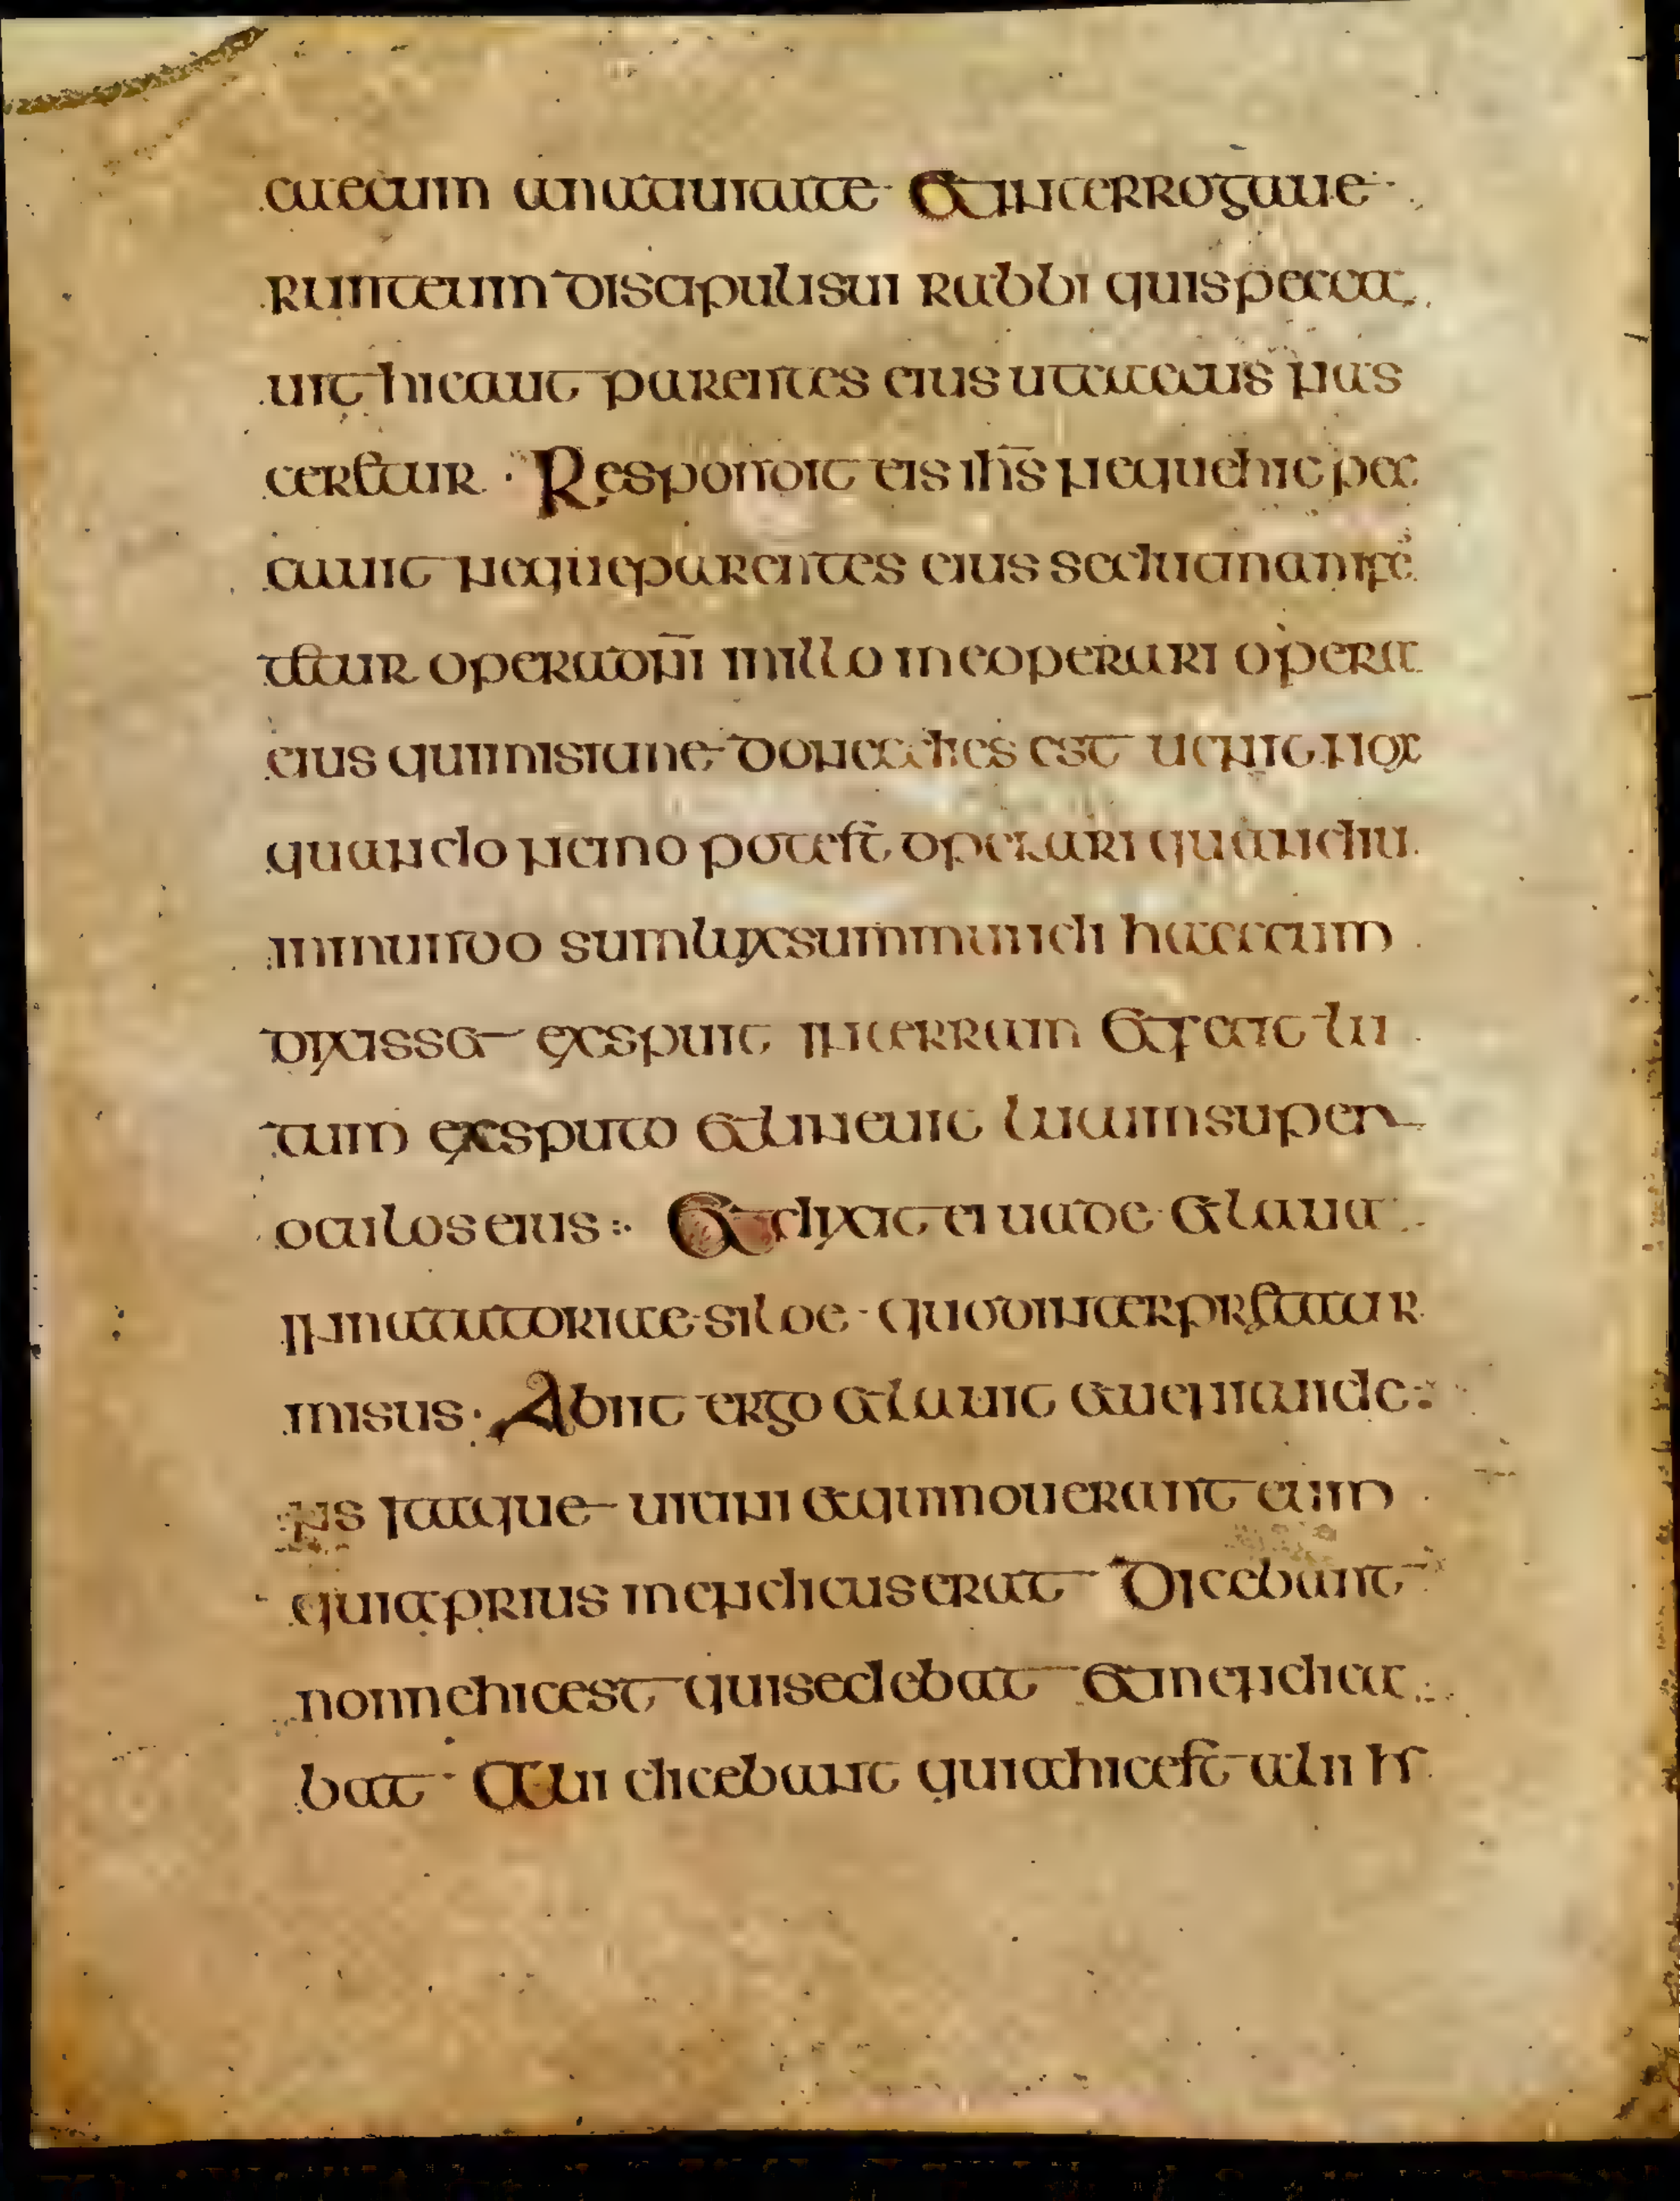 caecum anatiuitate & interrogaue
runt eum discipuli sui rabbi quis pecca
uit hic aut parentes eius ut caecus nas
ceretur · Respondit eis ihs̄ neque hic pec
cauit neque parentes eius sed ut manife
tetur opera dn̄i in illo me operari opera
eius qui misit me donec dies est uenit nox
quando nemo potest operari quandiu
in mundo sum lux sum mundi haec cum
dixisset exspuit in terram & fecit lu
tum ex sputo & lineuit lutum super
oculos eius :· & dixit ei uade & laua
in natatoriae siloe · quod interpretatur
misus · Abiit ergo & lauit & uenit uide
ns Itaque uicini & qui nouerant eum
quia prius mendicus erat Dicebant
nonne hic est qui sedebat & mendica
bat · Alii dicebant quia hic est alii hr